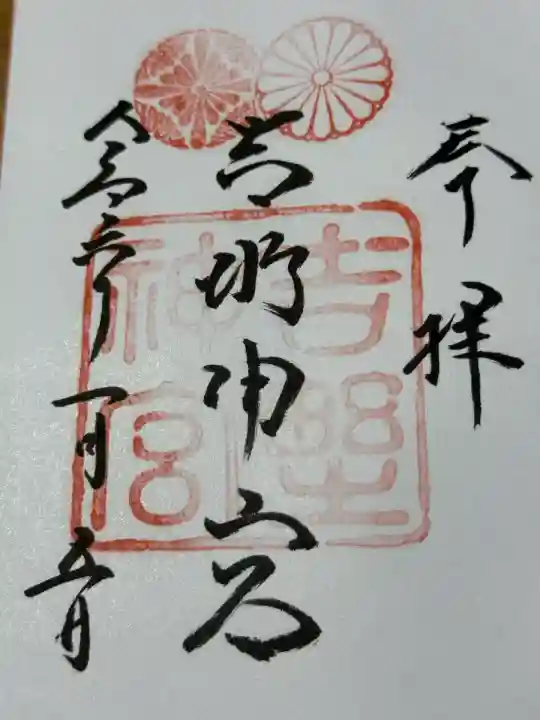 奉拝
吉野神宮
吉野
神宮
令和六年一月五日